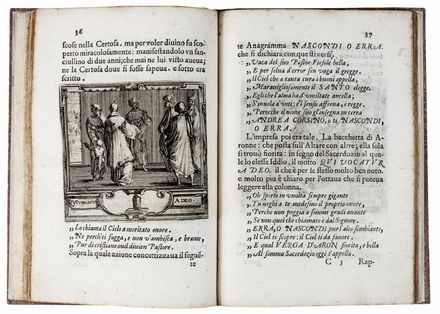 36
scose nella Certosa, ma per voler divino fu sco-
perto miracolosamente: manifestandolo vn fan-
ciullino di due anni; che mai ne lui visto aueua;
ne la Certosa doue si fosse sapeua. e sotto era
scritto.
A DEO.
Lo chiama il Ciel a meritato onore.
Ne perch'ei fugga, e non v'ambisca, e brame,
Pur di cristiano ouil diuien Pastore.
Sopra la quale azione concettizzaua il seguē-
te
37
te Anagramma NASCONDI O ERRA.
che si dichiara con questi versi,
„ Vaca del suo Pastor Fiesole bella,
„ E per selua d'error sen vaga il gregge.
„ Il Ciel che a tanta cura i buoni elegge,
„ Marauigliosamente il SANTO elegge.
„ Egli che l'alma ha d'vmiltate ancella;
„ S'inuola a vnti: e'l senso affrena, e regge.
„ Perche il nome suo gl'insegna in dirgli:
„ ANDREA CORSINO, o ti NASCONDI,
O ERRA.
L'impresa poi era tale. La bacchetta di A-
ronne: che posta sull'Altare con altre; ella sola
si trouò fiorita: in segno del Sacerdozio al qua-
lo elesse Iddio. il motto QVI VOCATVR
A DEO, il che è per se stesso molto ben noto.
o molto più è chiaro per l'ottaua che si poteua
leggere alla colonna.
„ Oh spirto in vmiltà sempre gigante
„ Tu neghi a te medesimo il proprio onore.
„ Perche non poggi a sommi gradi auante
„ Se non quei che chiamati è dal Signore.
„ ERRA, O NASCONDI pur l'almo sembiante,
„ Il Ciel ti scopre: il Ciel ti da fauore.
„ E qual VERGA D'ARON fiorita, e bella
„ Al sommo Sacerdozio oggi t'appella.
C 3 Rap-